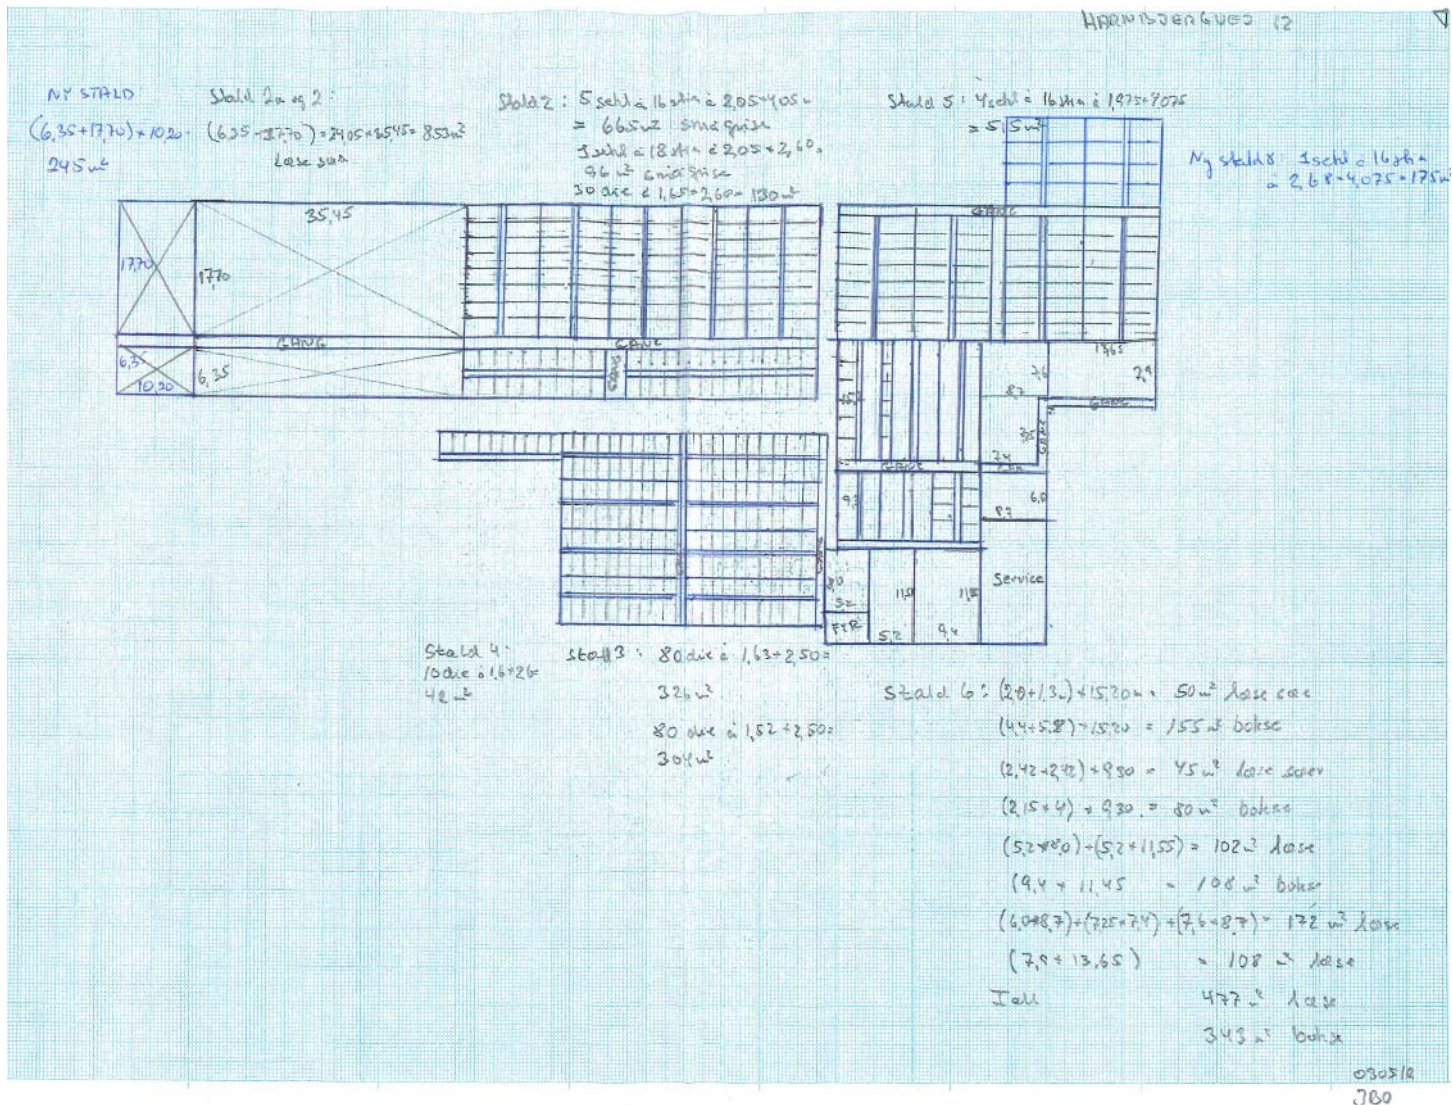 HARNBJERGVEJ 12
NY STALD:
(6,35+17,70)×10,20=
245 m²
Stald 2a og 2:
(6,35+17,70)=24,05×35,45=853m²
løse søer
Stald 2: 5 sekt à 16 stier à 2,05×4,05=
= 665 m² smågrise
1 sekt à 18 stier à 2,05×2,60=
96 m² smågrise
30 die à 1,65×2,60=130 m²
Stald 5: 4 sekt à 16 stier à 1,975×4,075
= 515 m²
Ny stald 8 1 sekt à 16 stier
à 2,68×4,075=175 m²
35,45
17,70
17,70
GANG
GANG
GANG
GANG
6,35
10,20
6,35
13,65
7,6
7,9
8,7
GANG
15,2
3,5
GANG
7,4
GANG
9,3
6,0
8,7
GANG
8,0
5,2
11,5
11,5
Service
FER
5,2
9,4
Stald 4:
10 die à 1,6×2,6=
42 m²
Stald 3: 80 die à 1,63×2,50=
326 m²
80 die à 1,52×2,50=
304 m²
Stald 6: (2,0+1,3)×15,20 = 50 m² løse søer
(4,4+5,8)×15,20 = 155 m² bokse
(2,42+2,42)×9,30 = 45 m² løse søer
×9,30 = 80 m² bokse
(5,2×8,0)+(5,2×11,55) = 102 m² løse
(9,4×11,45 = 108 m² bokse
(6,0×8,7)+(7,25×7,4)+(7,6×8,7) = 172 m² løse
(7,9×13,65) = 108 m² løse
I alt 477 m² løse
343 m² bokse
030512
JBO